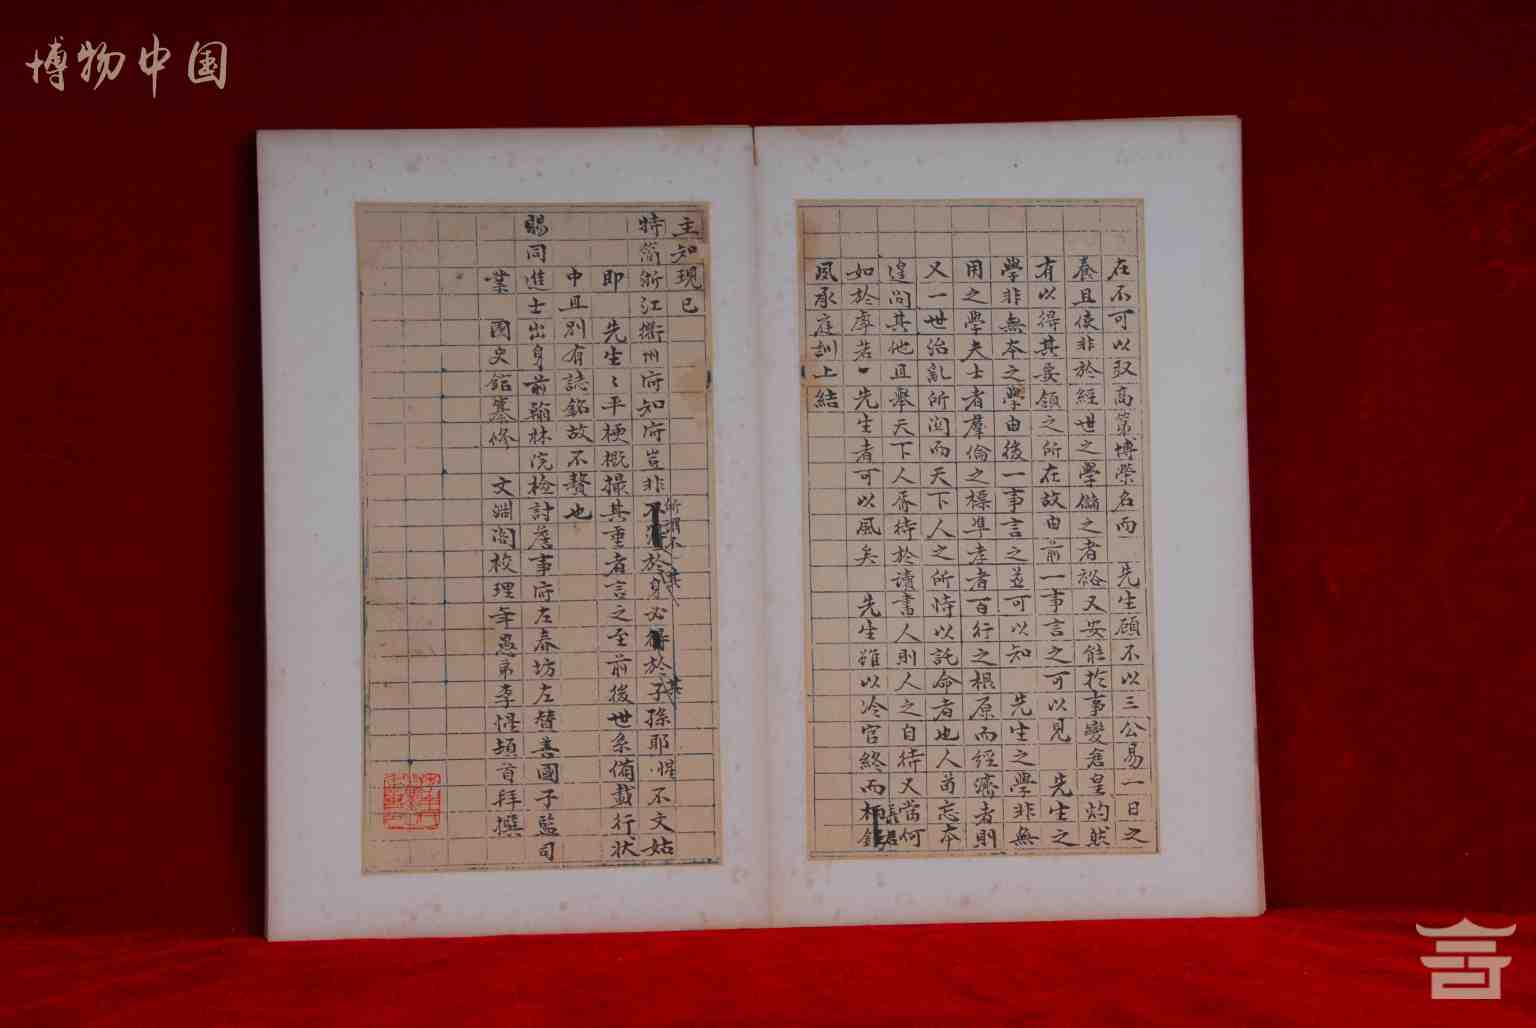 博物中国
在不可以取高第博榮名而 先生顧不以三公易一日之
養且使非於經世之學儲之者裕又安能於事變倉皇灼然
有以得其要領之所在故由前一事言之可以見 先生之
學非無本之學由後一事言之並可以知 先生之學非無
用之學夫士者羣倫之標準孝者百行之根原而經濟者則
又一世治亂所關而天下人之所恃以託命者也人苟忘本
遑問其他且舉天下人屬待於讀書人則人之自待又當何
如於虖若 先生者可以風矣 先生雖以冷官終而
長君
風承庭訓上結
主知現已
特簡浙江衢州府知府豈非於身必於子孫耶惺不文姑
所謂不其
其
即 先生生平梗概撮其重者言之至前後世系備載行狀
中且別有誌銘故不贅也
賜同進士出身前翰林院檢討詹事府左春坊左贊善國子監司
業 國史館纂修 文淵閣校理年愚弟李惺頓首拜撰